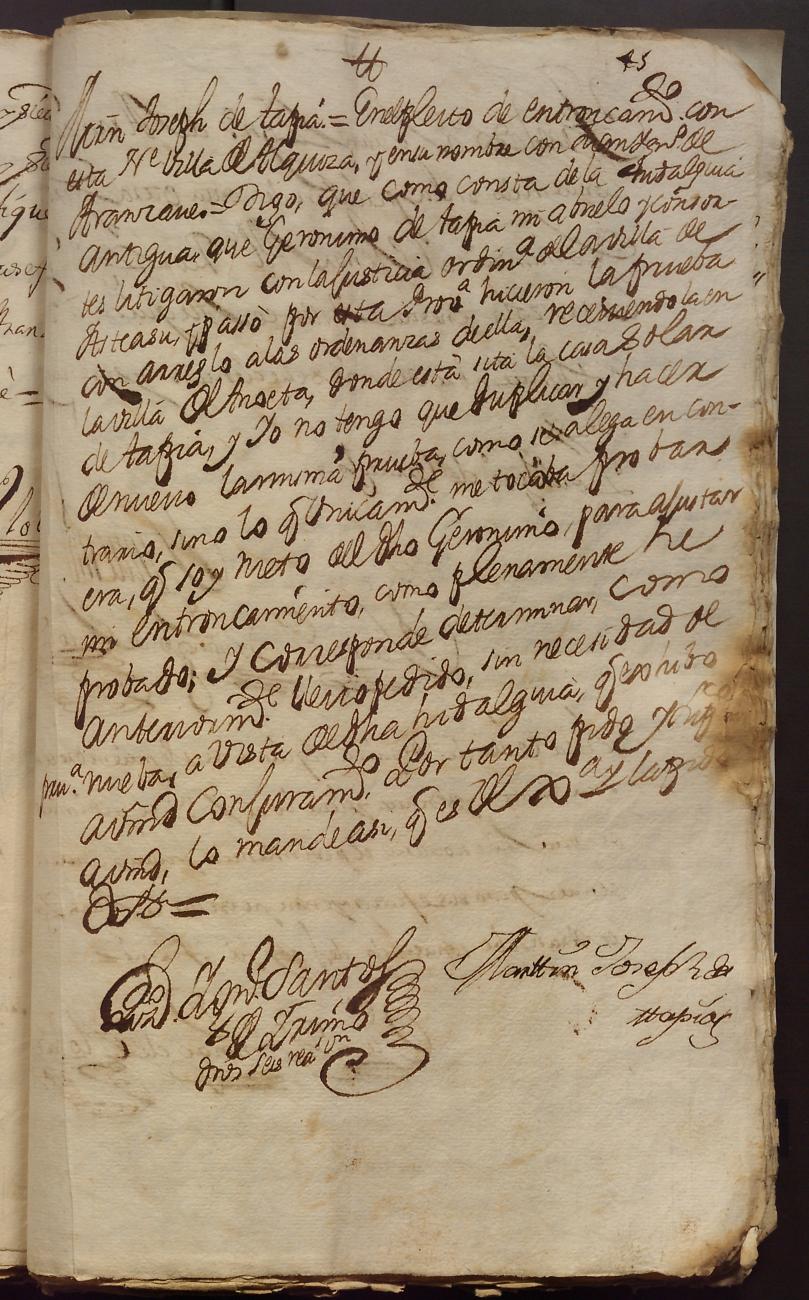 tt
45
Mrñ Joseph de tapia = En el pleito de entroncam.to con
esta N.e Villa de Alquiza, y en su nombre con Juan de
Aranzaue = Digo, que como consta de la hidalguia
antigua, que Geronimo de tapia mi abuelo y consor-
tes litigaron con la Justicia ordin.a de la villa de
Asteasu, y passó por esta Prov.a hicieron la prueba
con arreglo a las ordenanzas de ella, reciuiendola en
la villa de Anoeta, donde està sita la casa solar
de tapia, y Yo no tengo que duplicar y hacer
de nuevo la misma prueba, como se alega en con-
trario, sino lo q̃ Vnicam.te me tocaba probar
era, q̃ soy nieto del dho Geronimo, para ajustar
mi entroncamiento, como plenamente he
probado; y corresponde determinar, como
anteriorm.te llevo pedido, sin necesidad de
pru.a nueba, a vista de dha hidalguia, q̃ exhibo
a vmd con juram.to Por tanto pido y sup.co
a vmd, lo mande asi, q̃ es de Jus.a y la pido
Costas =
Santos
Marttin Joseph de
ttapia
dros seis rea.s von